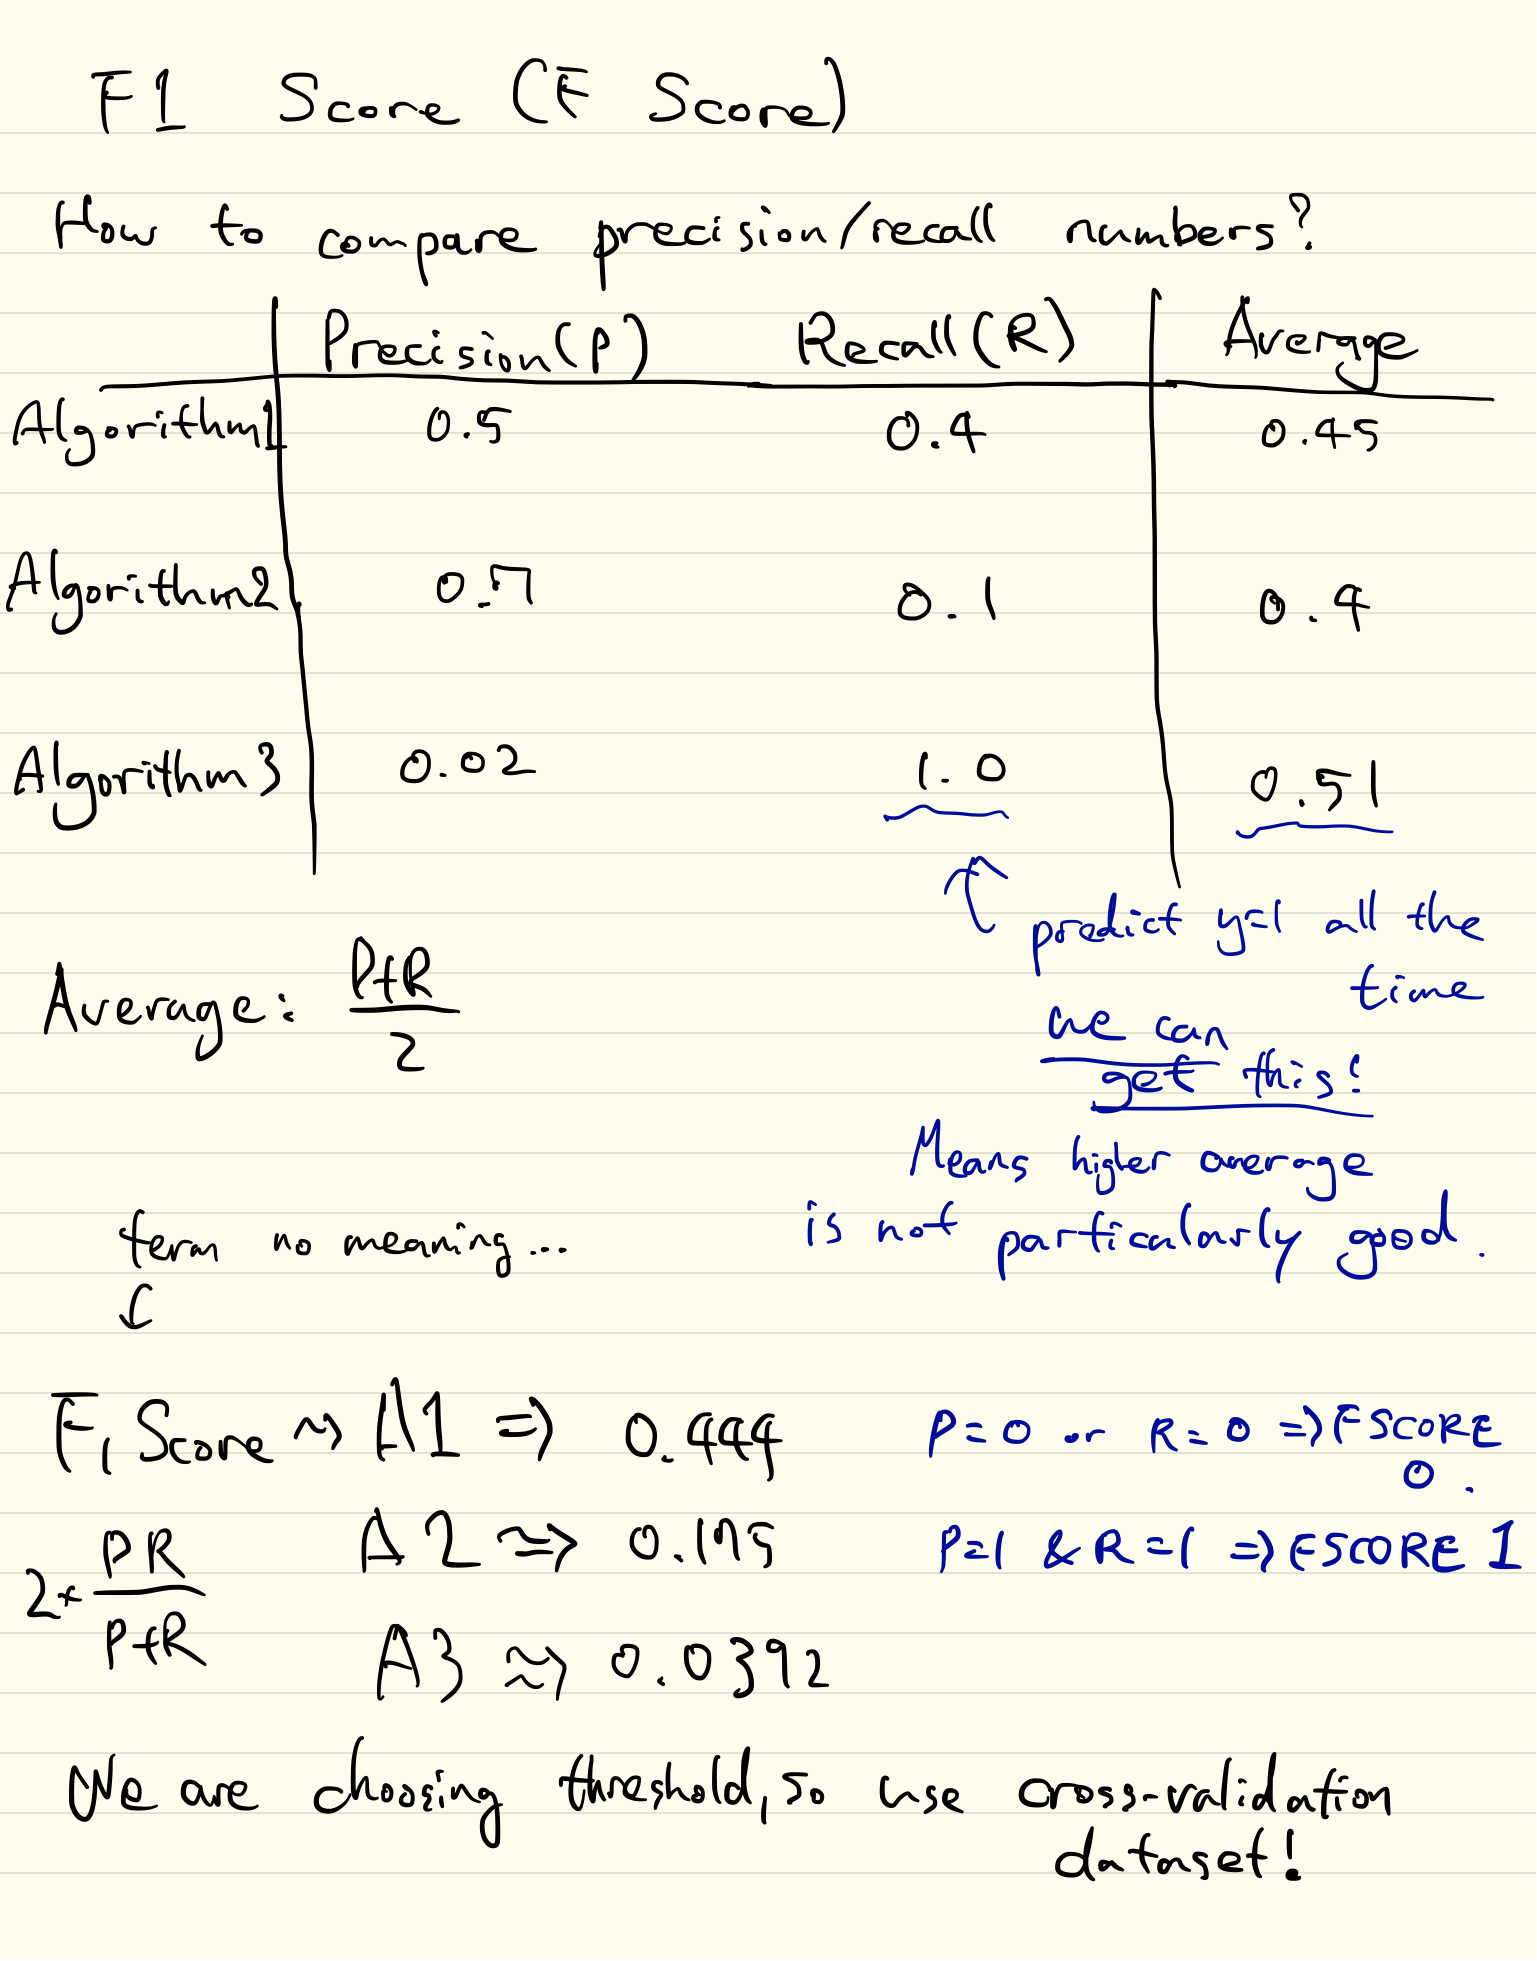 F1 Score (F Score)
How to compare precision/recall numbers?
Precision(P) Recall(R) Average
Algorithm1 0.5 0.4 0.45
Algorithm2 0.7 0.1 0.4
Algorithm3 0.02 1.0 0.51
predict y=1 all the
time
we can
get this!
Average: P+R
2
Means higher average
is not particularly good.
term no meaning...
F1 Score ~> A1 => 0.444
P=0 or R=0 => F SCORE
0.
2* PR
P+R
A2 ≈> 0.175
P=1 & R=1 => F SCORE 1
A3 ≈> 0.0392
We are choosing threshold, so use cross-validation
dataset!